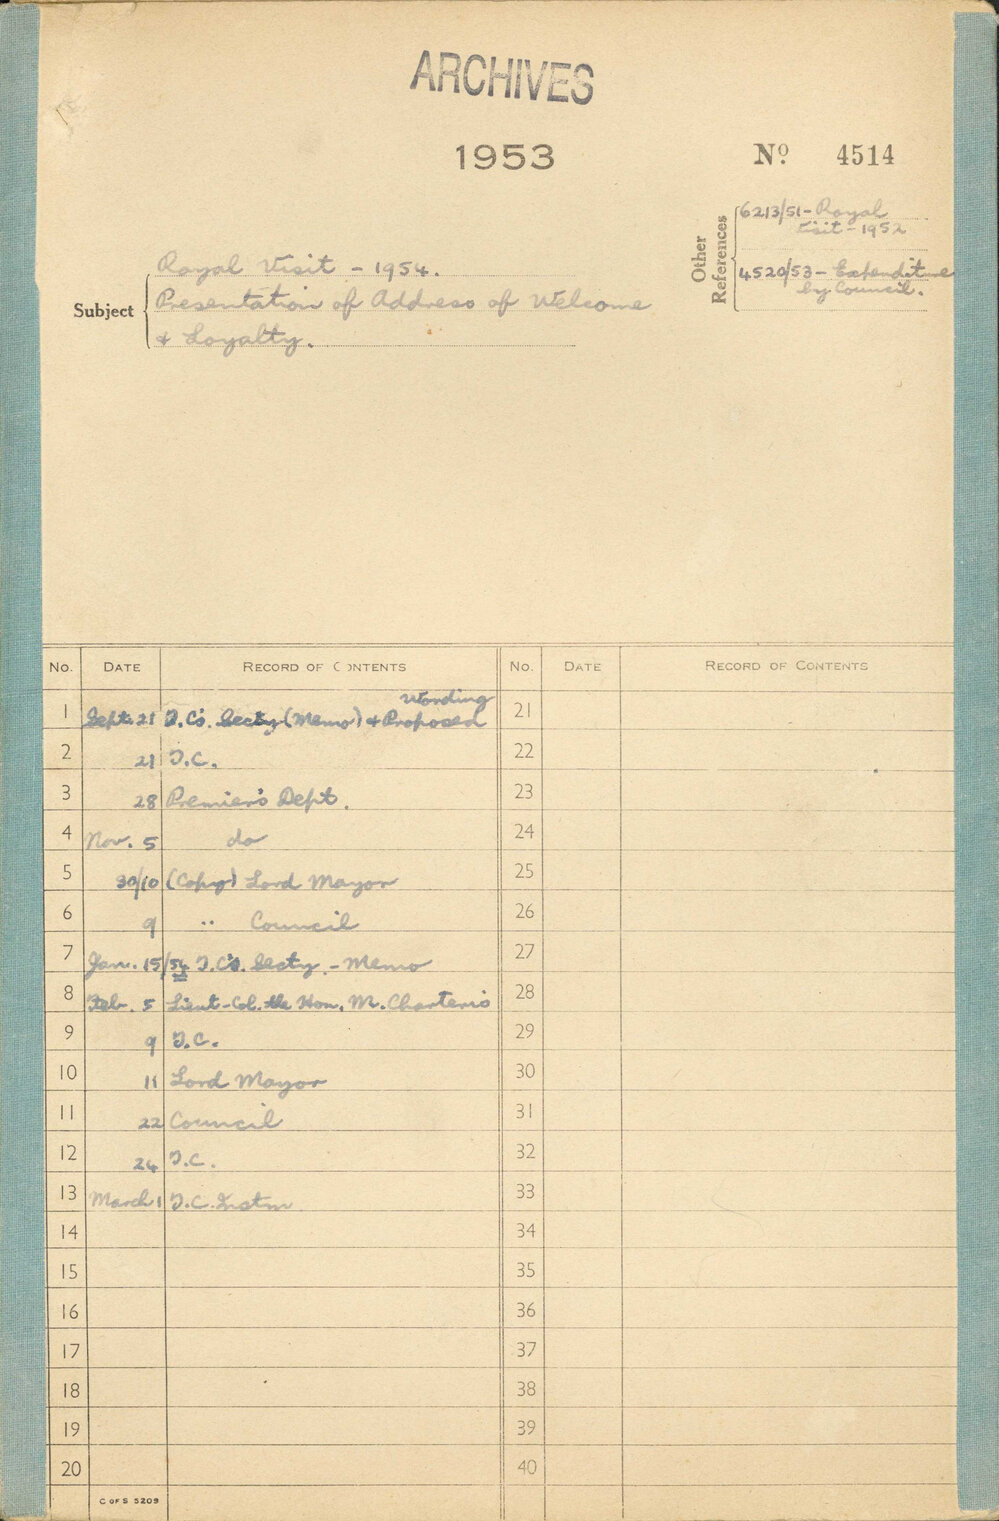 ARCHIVES
1953
Nº 4514
Other References
6213/51 - Royal
Visit - 1952
4520/53 - Expenditure
by Council.
Subject
Royal Visit - 1954.
Presentation of Address of Welcome
& Loyalty.
No. DATE RECORD OF CONTENTS No. DATE RECORD OF CONTENTS
Wording
1 Sept. 21 T.C's. Secty (Memo) & Proposed 21
2 21 T.C. 22
3 28 Premier's Dept. 23
4 Nov. 5 do 24
5 30/10 (Copy) Lord Mayor 25
6 9 " Council 26
7 Jan. 15/54 T.C's. Secty. - Memo 27
8 Feb. 5 Lieut-Col. the Hon. M. Charteris 28
9 9 T.C. 29
10 11 Lord Mayor 30
11 22 Council 31
12 24 T.C. 32
13 March 1 T.C. Instn 33
14 34
15 35
16 36
17 37
18 38
19 39
20 40
C OF S 5209